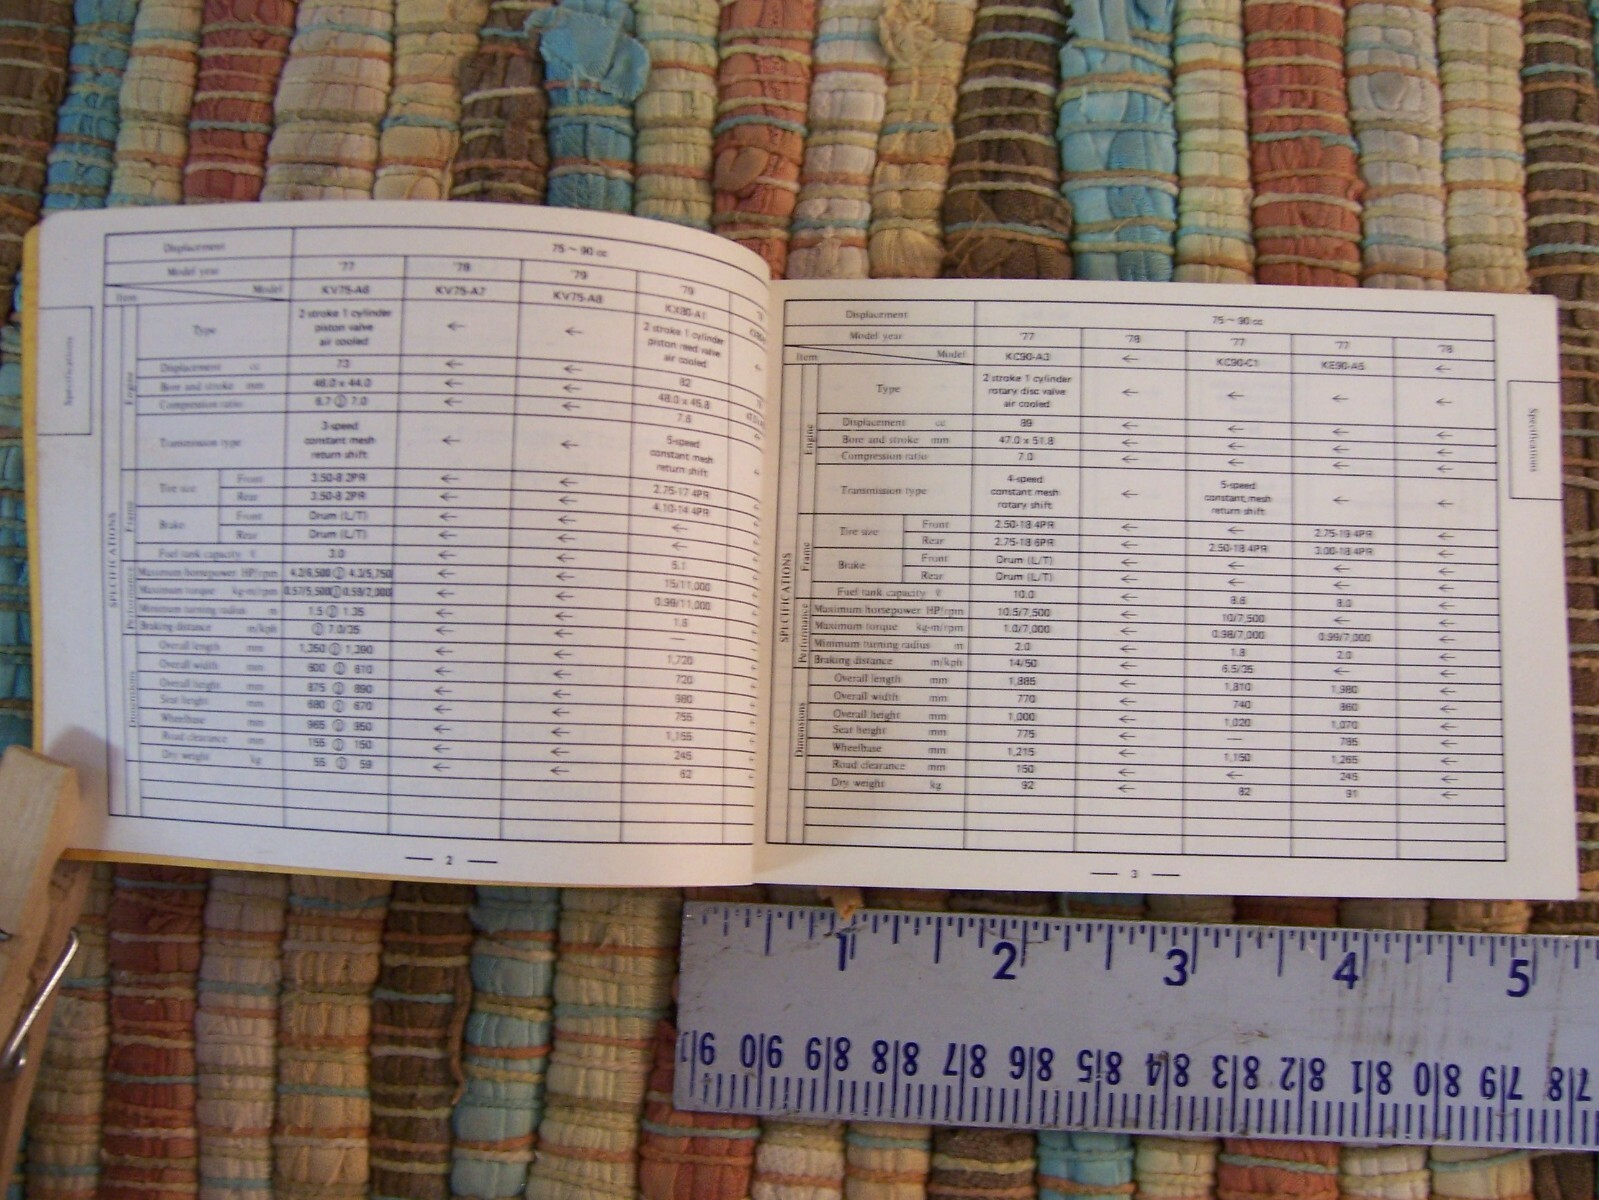 Specifications
Displacement 75 ~ 90 cc
Model year '77 '78 '79 '79
Item Model KV75-A6 KV75-A7 KV75-A8 KX80-A1
SPECIFICATIONS
Engine
Type 2 stroke 1 cylinder piston valve air cooled ← ← 2 stroke 1 cylinder piston reed valve air cooled ←
Displacement cc 73 ← ← 82
Bore and stroke mm 46.0 x 44.0 ← ← 48.0 x 45.8
Compression ratio 6.7 Ⓙ 7.0 ← ← 7.8 ←
Transmission type 3-speed constant mesh return shift ← ← 5-speed constant mesh return shift ←
Frame
Tire size Front 3.50-8 2PR ← ← 2.75-17 4PR
Rear 3.50-8 2PR ← ← 4.10-14 4PR
Brake Front Drum (L/T) ← ← ←
Rear Drum (L/T) ← ← ←
Fuel tank capacity ℓ 3.0 ← ← 5.1
Performance
Maximum horsepower HP/rpm 4.2/6,500 Ⓙ 4.3/5,750 ← ← 15/11,000
Maximum torque kg-m/rpm 0.57/5,500 Ⓙ 0.59/2,000 ← ← 0.99/11,000
Minimum turning radius m 1.5 Ⓙ 1.35 ← ← 1.8
Braking distance m/kph Ⓙ 7.0/35 ← ← —
Dimensions
Overall length mm 1,350 Ⓙ 1,390 ← ← 1,720
Overall width mm 600 Ⓙ 610 ← ← 720
Overall height mm 875 Ⓙ 890 ← ← 980
Seat height mm 680 Ⓙ 670 ← ← 755
Wheelbase mm 965 Ⓙ 950 ← ← 1,155
Road clearance mm 155 Ⓙ 150 ← ← 245
Dry weight kg 55 Ⓙ 59 ← ← 62
— 2 —
Displacement 75 ~ 90 cc
Model year '77 '78 '77 '77 '78
Item Model KC90-A3 ← KC90-C1 KE90-A5 ←
SPECIFICATIONS
Engine
Type 2 stroke 1 cylinder rotary disc valve air cooled ← ← ← ←
Displacement cc 89 ← ← ← ←
Bore and stroke mm 47.0 x 51.8 ← ← ← ←
Compression ratio 7.0 ← ← ← ←
Transmission type 4-speed constant mesh rotary shift ← 5-speed constant mesh return shift ← ←
Frame
Tire size Front 2.50-18 4PR ← ← 2.75-19 4PR ←
Rear 2.75-18 6PR ← 2.50-18 4PR 3.00-18 4PR ←
Brake Front Drum (L/T) ← ← ← ←
Rear Drum (L/T) ← ← ← ←
Fuel tank capacity ℓ 10.0 ← 8.6 8.0 ←
Performance
Maximum horsepower HP/rpm 10.5/7,500 ← 10/7,500 ← ←
Maximum torque kg-m/rpm 1.0/7,000 ← 0.98/7,000 0.99/7,000 ←
Minimum turning radius m 2.0 ← 1.8 2.0 ←
Braking distance m/kph 14/50 ← 6.5/35 ← ←
Dimensions
Overall length mm 1,885 ← 1,810 1,980 ←
Overall width mm 770 ← 740 860 ←
Overall height mm 1,000 ← 1,020 1,070 ←
Seat height mm 775 ← — 795 ←
Wheelbase mm 1,215 ← 1,150 1,265 ←
Road clearance mm 150 ← ← 245 ←
Dry weight kg 92 ← 82 91 ←
— 3 —
Specifications
1 2 3 4 5
91 90 89 88 87 86 85 84 83 82 81 80 79 78